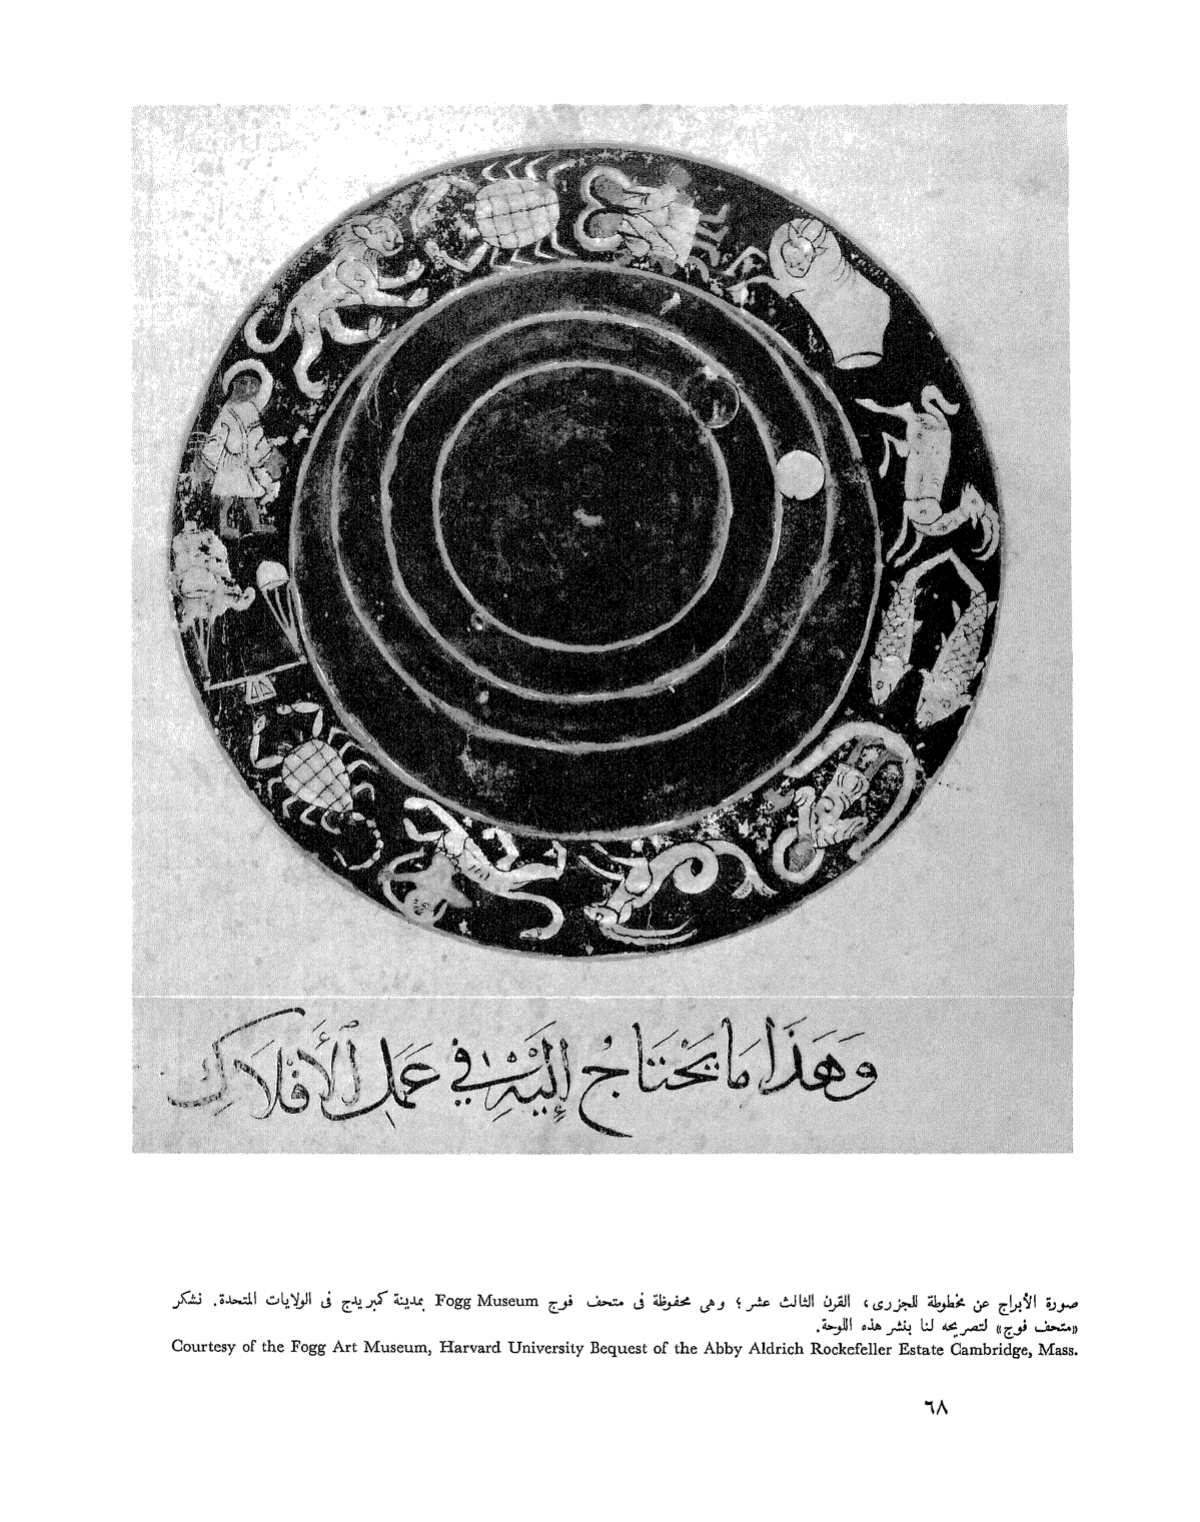 وَهَذَا مَا يَحْتَاجُ إِلَيْهِ فِي عَمَلِ الأَفْلَاكِ
صورة الأبراج عن مخطوطة للجزرى، القرن الثالث عشر؛ وهى محفوظة فى متحف فوج Fogg Museum بمدينة كمبريدج فى الولايات المتحدة. نشكر
«متحف فوج» لتصريحه لنا بنشر هذه اللوحة.
Courtesy of the Fogg Art Museum, Harvard University Bequest of the Abby Aldrich Rockefeller Estate Cambridge, Mass.
٦٨